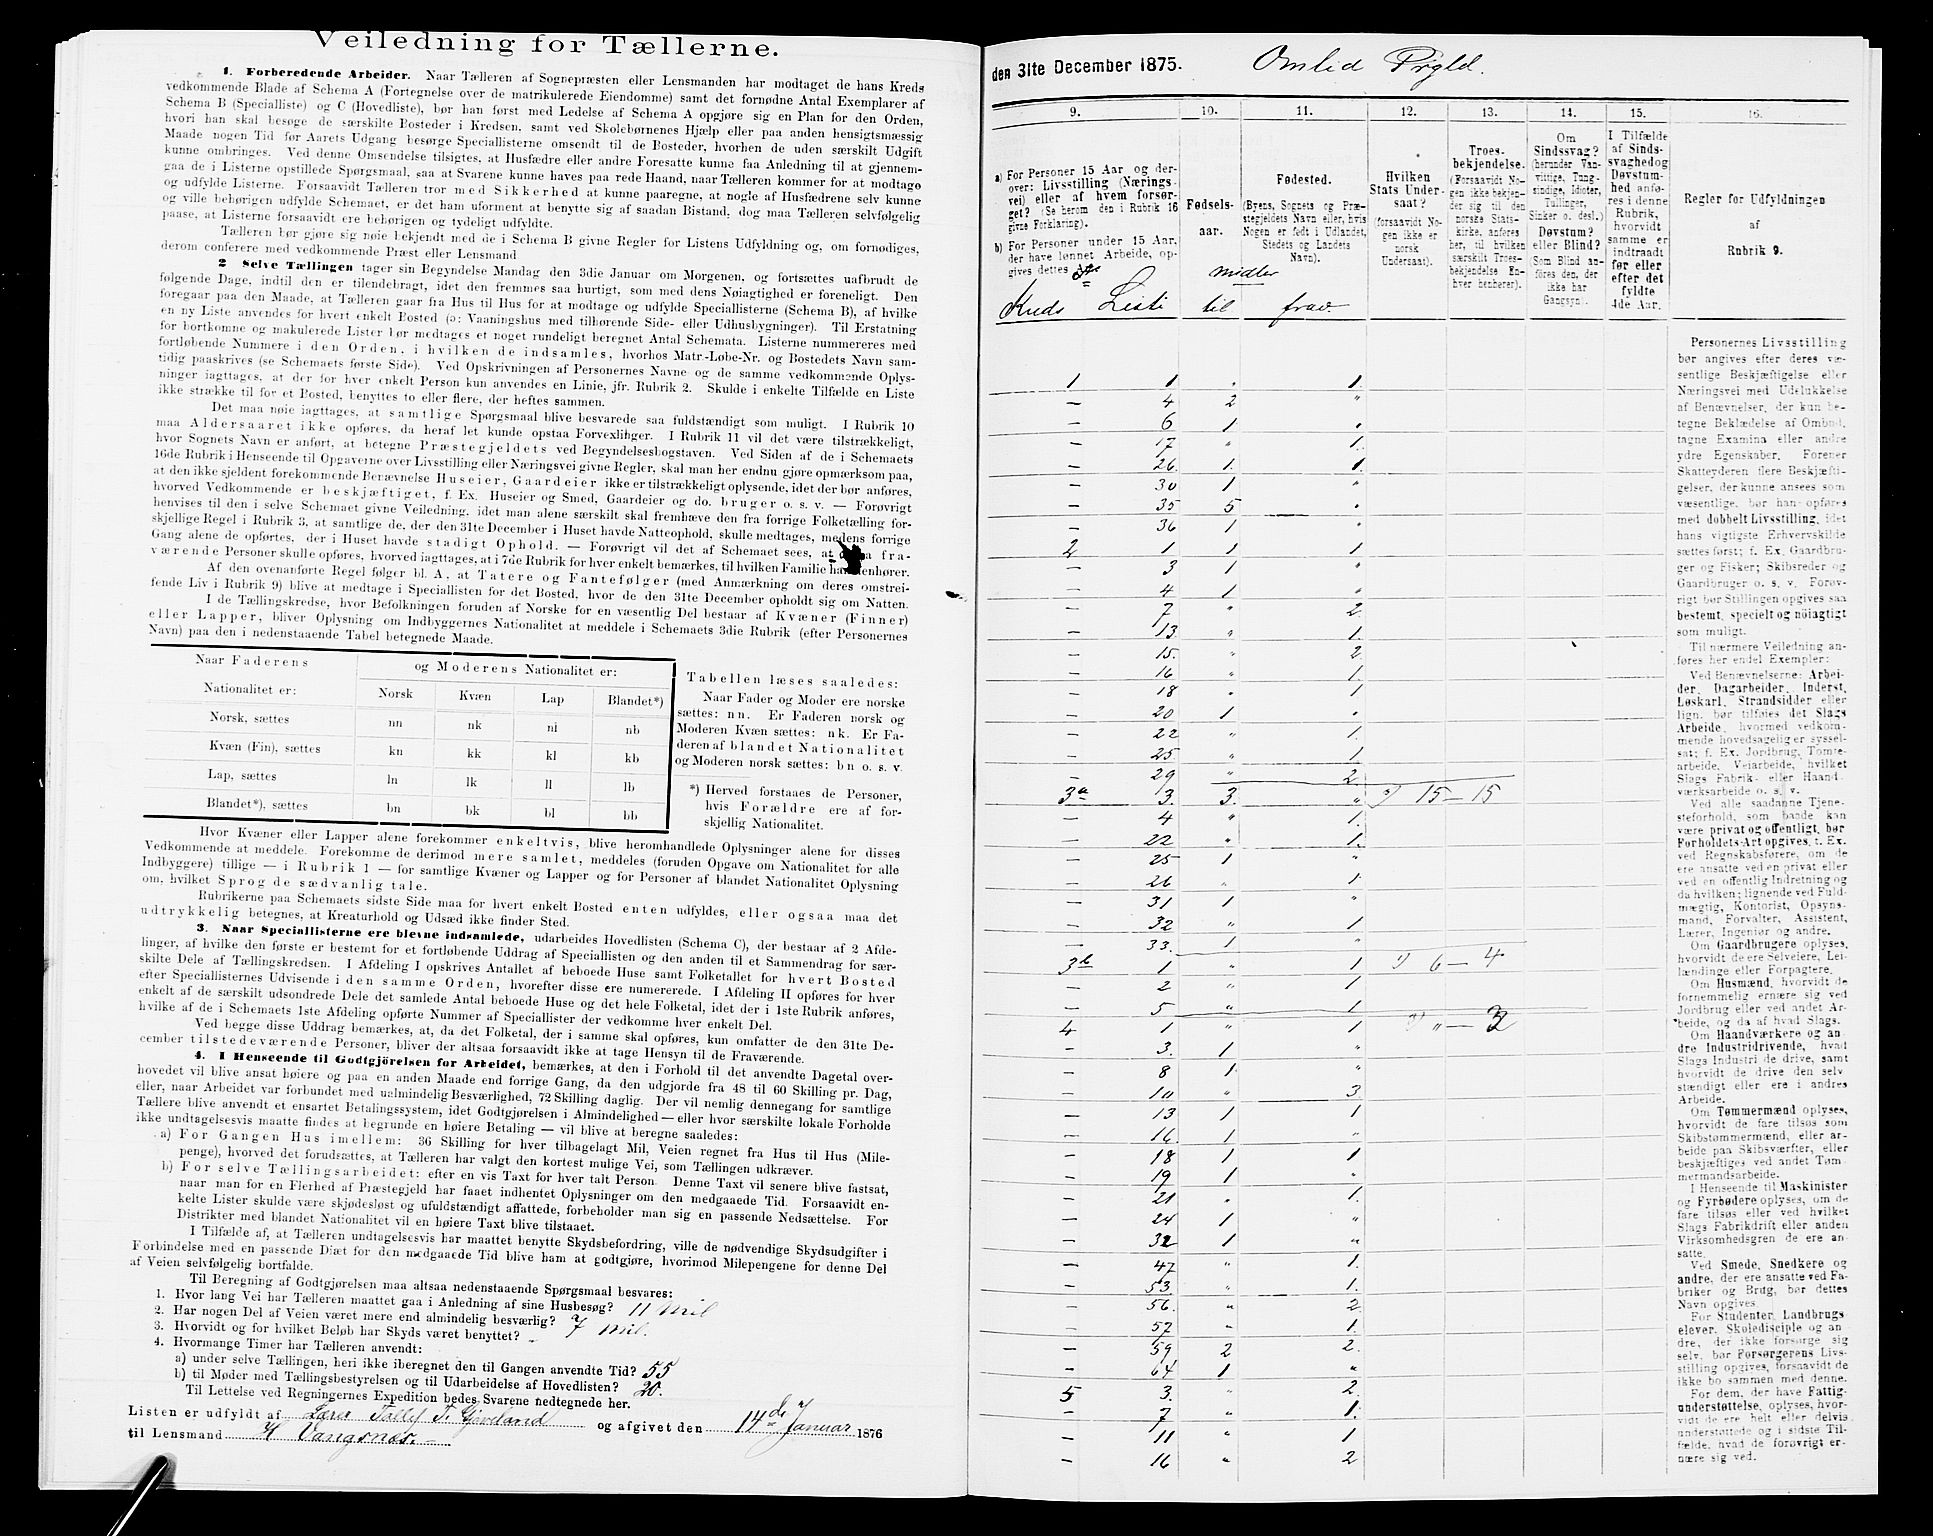 Veiledning for Tællerne.
1. Forberedende Arbeider. Naar Tælleren af Sognepræsten eller Lensmanden har modtaget de hans Kreds
vedkommende Blade af Schema A (Fortegnelse over de matrikulerede Eiendomme) samt det fornødne Antal Exemplarer af
Schema B (Specialliste) og C (Hovedliste), bør han først med Ledelse af Schema A opgjøre sig en Plan for den Orden,
hvori han skal besøge de særskilte Bosteder i Kredsen, samt ved Skolebørnenes Hjælp eller paa anden hensigtsmæssig
Maade nogen Tid før Aarets Udgang besørge Speciallisterne omsendt til de Bosteder, hvorhen de uden særskilt Udgift
kunne ombringes. Ved denne Omsendelse tilsigtes, at Husfædre eller andre Foresatte kunne faa Anledning til at gjennem-
gaa de i Listerne opstillede Spørgsmaal, saa at Svarene kunne haves paa rede Haand, naar Tælleren kommer for at modtage
og udfylde Listerne. Forsaavidt Tælleren tror med Sikkerhed at kunne paaregne, at nogle af Husfædrene selv kunne
og ville behørigen udfylde Schemaet, er det ham uforment at benytte sig af saadan Bistand, dog maa Tælleren selvfølgelig
paase, at Listerne forsaavidt ere behørigen og tydeligt udfyldte.
Tælleren bør gjøre sig nøie bekjendt med de i Schema B givne Regler for Listens Udfyldning og, om fornødiges,
derom conferere med vedkommende Præst eller Lensmand.
2 Selve Tællingen tager sin Begyndelse Mandag den 3die Januar om Morgenen, og fortsættes uafbrudt de
følgende Dage, indtil den er tilendebragt, idet den fremmes saa hurtigt, som med dens Nøiagtighed er foreneligt. Den
foregaar paa den Maade, at Tælleren gaar fra Hus til Hus for at modtage og udfylde Speciallisterne (Schema B), af hvilke
en ny Liste anvendes for hvert enkelt Bosted (ɔ: Vaaningshus med tilhørende Side- eller Udhusbygninger). Til Erstatning
for bortkomne og makulerede Lister bør medtages et noget rundeligt beregnet Antal Schemata. Listerne nummereres med
fortløbende Nummere i den Orden, i hvilken de indsamles, hvorhos Matr.-Løbe-Nr. og Bostedets Navn sam-
tidig paaskrives (se Schemaets første Side). Ved Opskrivningen af Personernes Navne og de samme vedkommende Oplys-
ninger iagttages, at der for hver enkelt Person kun anvendes en Linie, jfr. Rubrik 2. Skulde i enkelte Tilfælde en Liste
ikke strække til for et Bosted, benyttes to eller flere, der heftes sammen.
Det maa nøie iagttages, at samtlige Spørgsmaal blive besvarede saa fuldstændigt som muligt. I Rubrik 10
maa Aldersaaret ikke opføres, da heraf let kunde opstaa Forvexlinger. I Rubrik 11 vil det være tilstrækkeligt,
hvor Sognets Navn er anført, at betegne Præstegjeldets ved Begyndelsesbogstaven. Ved Siden af de i Schemaets
16de Rubrik i Henseende til Opgaverne over Livsstilling eller Næringsvei givne Regler, skal man her endnu gjøre opmærksom paa,
at den ikke sjeldent forekommende Benævnelse Huseier, Gaardeier ikke er tilstrækkeligt oplysende, idet der bør anføres,
hvorved Vedkommende er beskjæftiget, f. Ex. Huseier og Smed, Gaardeier og do. bruger o. s. v. — Forøvrigt
henvises til den i selve Schemaet givne Veiledning, idet man alene særskilt skal fremhæve den fra forrige Folketælling for-
skjellige Regel i Rubrik 3, at samtlige de, der den 31te December i Huset havde Natteophold, skulle medtages, medens forrige
Gang alene de opførtes, der i Huset havde stadigt Ophold. — Forøvrigt vil det af Schemaet sees, at fra-
værende Personer skulle opføres, hvorved iagttages, at i 7de Rubrik for hver enkelt bemærkes, til hvilken Familie han henhører.
Af den ovenanførte Regel følger bl. A. at Tatere og Fantefølger (med Anmærkning om deres omstrei-
fende Liv i Rubrik 9) blive at medtage i Speciallisten for det Bosted, hvor de den 31te December opholdt sig om Natten.
I de Tællingskredse, hvor Befolkningen foruden af Norske for en væsentlig Del bestaar af Kvæner (Finner)
eller Lapper, bliver Oplysning om Indbyggernes Nationalitet at meddele i Schemaets 3die Rubrik (efter Personernes
Navn) paa den i nedenstaaende Tabel betegnede Maade.
Naar Faderens og Moderens Nationalitet er:
Nationalitet er: Norsk Kvæn Lap Blandet*)
Norsk, sættes nn nk nl nb
Kvæn (Fin), sættes kn kk kl kb
Lap, sættes ln lk ll lb
Blandet*), sættes bn bk bl bb
Tabellen læses saaledes:
Naar Fader og Moder ere norske
sættes: nn. Er Faderen norsk og
Moderen Kvæn sættes: nk. Er Fa-
deren af blandet Nationalitet
og Moderen norsk sættes: bn o. s. v.
*) Herved forstaaes de Personer,
hvis Forældre ere af for-
skjellig Nationalitet.
Hvor Kvæner eller Lapper alene forekommer enkeltvis, blive heromhandlede Oplysninger alene for disses
Vedkommende at meddele. Forekomme de derimod mere samlet, meddeles (foruden Opgave om Nationalitet for alle
Indbyggere) tillige — i Rubrik 1 — for samtlige Kvæner og Lapper og for Personer af blandet Nationalitet Oplysning
om, hvilket Sprog de sædvanlig tale.
Rubrikerne paa Schemaets sidste Side maa for hvert enkelt Bosted enten udfyldes, eller ogsaa maa det
udtrykkelig betegnes, at Kreaturhold og Udsæd ikke finder Sted.
3. Naar Speciallisterne ere blevne indsamlede, udarbeides Hovedlisten (Schema C), der bestaar af 2 Afde-
linger, af hvilke den første er bestemt for et fortløbende Uddrag af Speciallisten og den anden til et Sammendrag for sær-
skilte Dele af Tællingskredsen. I Afdeling I opskrives Antallet af beboede Huse samt Folketallet for hvert Bosted
efter Speciallisternes Udvisende i den samme Orden, hvorefter disse ere numererede. I Afdeling II opføres for hver
enkelt af de særskilt udsondrede Dele det samlede Antal beboede Huse og det hele Folketal, idet der i 1ste Rubrik anføres,
hvilke af de i Schemaets 1ste Afdeling opførte Nummer af Speciallister der vedkomme hver enkelt Del.
Ved begge disse Uddrag bemærkes, at, da det Folketal, der i samme skal opføres, kun omfatter de den 31te De-
cember tilstedeværende Personer, bliver der altsaa forsaavidt ikke at tage Hensyn til de Fraværende.
4. I Henseende til Godtgjørelsen for Arbeidet, bemærkes, at den i Forhold til det anvendte Dagetal over-
hovedet vil blive ansat høiere og paa en anden Maade end forrige Gang, da den udgjorde fra 48 til 60 Skilling pr. Dag,
eller, naar Arbeidet var forbundet med ualmindelig Besværlighed, 72 Skilling daglig. Der vil nemlig dennegang for samtlige
Tællere blive anvendt et ensartet Betalingssystem, idet Godtgjørelsen i Almindelighed — eller hvor særskilte lokale Forholde
ikke undtagelsesvis maatte findes at begrunde en høiere Betaling — vil blive at beregne saaledes:
a) For Gangen Hus imellem: 36 Skilling for hver tilbagelagt Mil, Veien regnet fra Hus til Hus (Mile-
penge), hvorved det forudsættes, at Tælleren har valgt den kortest mulige Vei, som Tællingen udkræver.
b) For selve Tællingsarbeidet: efter en vis Taxt for hver talt Person. Denne Taxt vil senere blive fastsat,
naar man for en Flerhed af Præstegjeld har faaet indhentet Oplysninger om den medgaaede Tid. Forsaavidt en-
kelte Lister skulde være skjødesløst og ufuldstændigt affattede, forbeholder man sig en passende Nedsættelse. For
Distrikter med blandet Nationalitet vil en høiere Taxt blive tilstaaet.
I Tilfælde af, at Tælleren undtagelsesvis har maattet benytte Skydsbefordring, ville de nødvendige Skydsudgifter i
Forbindelse med en passende Diæt for den medgaaede Tid blive ham at godtgjøre, hvorimod Milepengene for denne Del
af Veien selvfølgelig bortfalde.
Til Beregning af Godtgjørelsen maa altsaa nedenstaaende Spørgsmaal besvares:
1. Hvor lang Vei har Tælleren maattet gaa i Anledning af sine Husbesøg? 11 Mil
2. Har nogen Del af Veien været mere end almindelig besværlig? 7 Mil.
3. Hvorvidt og for hvilket Beløb har Skyds været benyttet? "
4. Hvormange Timer har Tælleren anvendt:
a) under selve Tællingen, heri ikke iberegnet den til Gangen anvendte Tid? 55
b) til Møder med Tællingsbestyrelsen og til Udarbeidelse af Hovedlisten? 20.
Til Lettelse ved Regningernes Expedition bedes Svarene nedtegnede her.
Listen er udfyldt af Lærer T. Gjøveland og afgivet den 14de Januar 1876
til Lensmand Vangsnæs.
den 31te December 1875. Omlid Prgld.
9. 10. 11. 12. 13. 14. 15. 16.
a) For Personer 15 Aar og der-
over: Livsstilling (Nærings-
vei) eller af hvem forsør-
get? (Se herom den i Rubrik 16
givne Forklaring).
b) For Personer under 15 Aar,
der have lønnet Arbeide, op-
gives dettes Art.
Fødsels-
aar.
Fødested.
(Byens, Sognets og Præ-
stegjeldets Navn eller, hvis
Nogen er født i Udlandet,
Stedets og Landets
Navn).
Hvilken
Stats Under-
saat?
(forsaavidt No-
gen ikke er
norsk
Undersaat).
Troes-
bekjendelse.
(Forsaavidt No-
gen ikke bekjen-
der sig til den
norske Stats-
kirke, anføres
her, til hvilken
særskilt Troes-
bekjendelse En-
hver henhører).
Om
Sindssvag?
(herunder Van-
vittige, Tung-
sindige, Idioter,
Tullinger,
Sinker o. desl.)
Døvstum?
eller Blind?
(Som Blind an-
føres den, der
ikke har
Gangsyn).
I Tilfælde
af Sinds-
svaghed og
Døvstum-
hed anfø-
res i denne
Rubrik,
hvorvidt
samme er
indtraadt
før eller
efter det
fyldte
4de Aar.
Regler for Udfyldningen
af
Rubrik 9.
midler
Kreds Liste til frav.
1 1 " 1.
— 4 2 "
— 6 1 "
— 17 " 1.
— 26. 1. 1.
— 30 1 "
— 35 5 "
— 36 1 "
2 1 1 1
— 3 1 "
— 4 1 "
— 7 " 2
— 13. " 1.
— 15. " 2
— 16 " 1.
— 18 " 1
— 20 1 "
— 22 " 1.
— 25. " 1
— 29 " 2
3a 3. 3. " T 15 — 15
— 4 " 1.
— 22 " 1.
— 25 1 "
— 26 " 1.
— 31 1 "
— 32 " 1
— 33. 1 "
3b 1 " 1 T 6 — 4
— 2 " 1
— 5 " 1
4 1 " 1 T " — 3
— 3. 1 "
— 8 1 "
— 10 " 3
— 13 1 1
— 16. 1 "
— 18 1 1
— 19 1 "
— 21 " 1.
— 24 1 "
— 32 1 "
— 47 " 1.
— 53. " 1.
— 56. " 2
— 57 " 1.
— 59 2 2.
— 64 1 "
5 3. " 2.
— 7 " 1.
— 11 " 1
— 16 " 2
Personernes Livsstilling
bør angives efter deres væ-
sentlige Beskjæftigelse eller
Næringsvei med Udelukkelse
af Benævnelser, der kun be-
tegne Beklædelse af Ombud,
tagne Examina eller andre
ydre Egenskaber. Forener
Skatteyderen flere Beskjæfti-
gelser, der kunne ansees som
væsentlige, bør han opføres
med dobbelt Livsstilling, idet
hans vigtigste Erhvervskilde
sættes først; f. Ex. Gaardbru-
ger og Fisker; Skibsreder og
Gaardbruger o. s. v. Forøv-
rigt bør Stillingen opgives saa
bestemt, specielt og nøiagtigt
som muligt.
Til nærmere Veiledning an-
føres her endel Exempler:
Ved Benævnelserne: Arbei-
der, Dagarbeider, Inderst,
Løskarl, Strandsidder eller
lign. bør tilføies det Slags
Arbeide, hvormed vedkom-
mende hovedsagelig er syssel-
sat; f. Ex. Jordbrug, Tømte-
arbeide, Veiarbeide, hvilket
Slags Fabrik- eller Haand-
værksarbeide o. s. v.
Ved alle saadanne Tjene-
steforhold, som baade kan
være privat og offentligt, bør
Forholdets Art opgives, f. Ex.
ved Regnskabsførere, om de
ere ansatte ved en privat eller
ved en offentlig Indretning og
da hvilken; lignende ved Fuld-
mægtig, Kontorist, Opsyns-
mand, Forvalter, Assistent,
Lærer, Ingeniør og andre.
Om Gaardbrugere oplyses,
hvorvidt de ere Selveiere, Lei-
lændinge eller Forpagtere.
Om Husmænd, hvorvidt de
fornemmelig ernære sig ved
Jordbrug eller ved andet Ar-
beide, og da af hvad Slags.
Om Haandværkere og an-
dre Industridrivende, hvad
Slags Industri de drive, samt
hvorvidt de drive den selv-
stændigt eller ere i andres
Arbeide.
Om Tømmermænd oplyses,
hvorvidt de fare tilsøs som
Skibstømmermænd, eller ar-
beide paa Skibsværfter, eller
beskjæftiges ved andet Tøm-
mermandsarbeide.
I Henseende til Maskinister
og Fyrbødere oplyses, om de
fare tilsøs eller ved hvilket
Slags Fabrikdrift eller anden
Virksomhedsgren de ere an-
satte.
Ved Smede, Snedkere og
andre, der ere ansatte ved Fa-
briker og Brug, bør dettes
Navn opgives.
For Studenter, Landbrugs-
elever, Skoledisciple og an-
dre, der ikke forsørge sig
selv, bør Forsørgerens Livs-
stilling opgives, forsaavidt de
ikke bo sammen med denne.
For dem, der have Fattig-
understøttelse, oplyses, hvor-
vidt de ere helt eller delvis
understøttede og i sidste Til-
fælde, hvad de forøvrigt er-
nære sig ved.